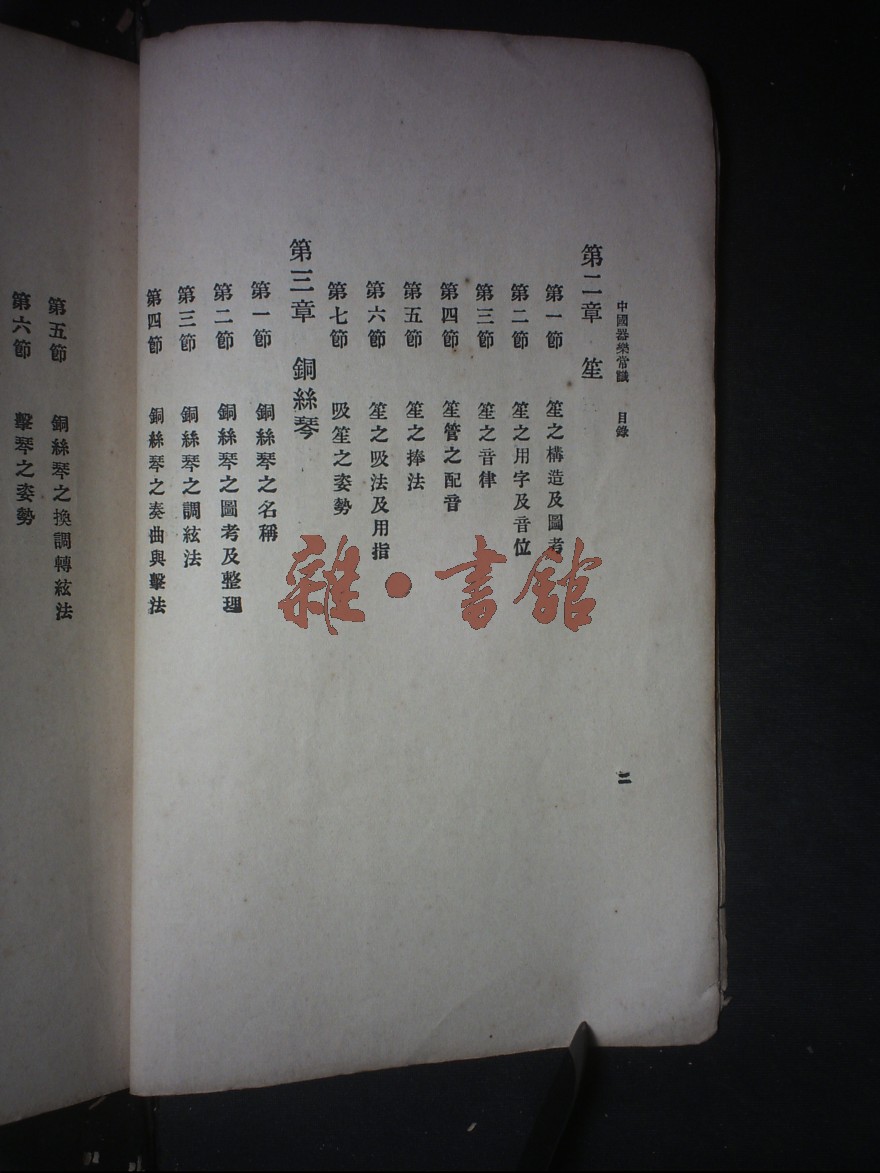 中國器樂常識　目錄
二
第二章　笙
第一節　笙之構造及圖考
第二節　笙之用字及音位
第三節　笙之音律
第四節　笙管之配音
第五節　笙之捧法
第六節　笙之吸法及用指
第七節　吸笙之姿勢
第三章　銅絲琴
第一節　銅絲琴之名稱
第二節　銅絲琴之圖考及整理
第三節　銅絲琴之調絃法
第四節　銅絲琴之奏曲與擊法
第五節　銅絲琴之換調轉絃法
第六節　擊琴之姿勢
雜·書館